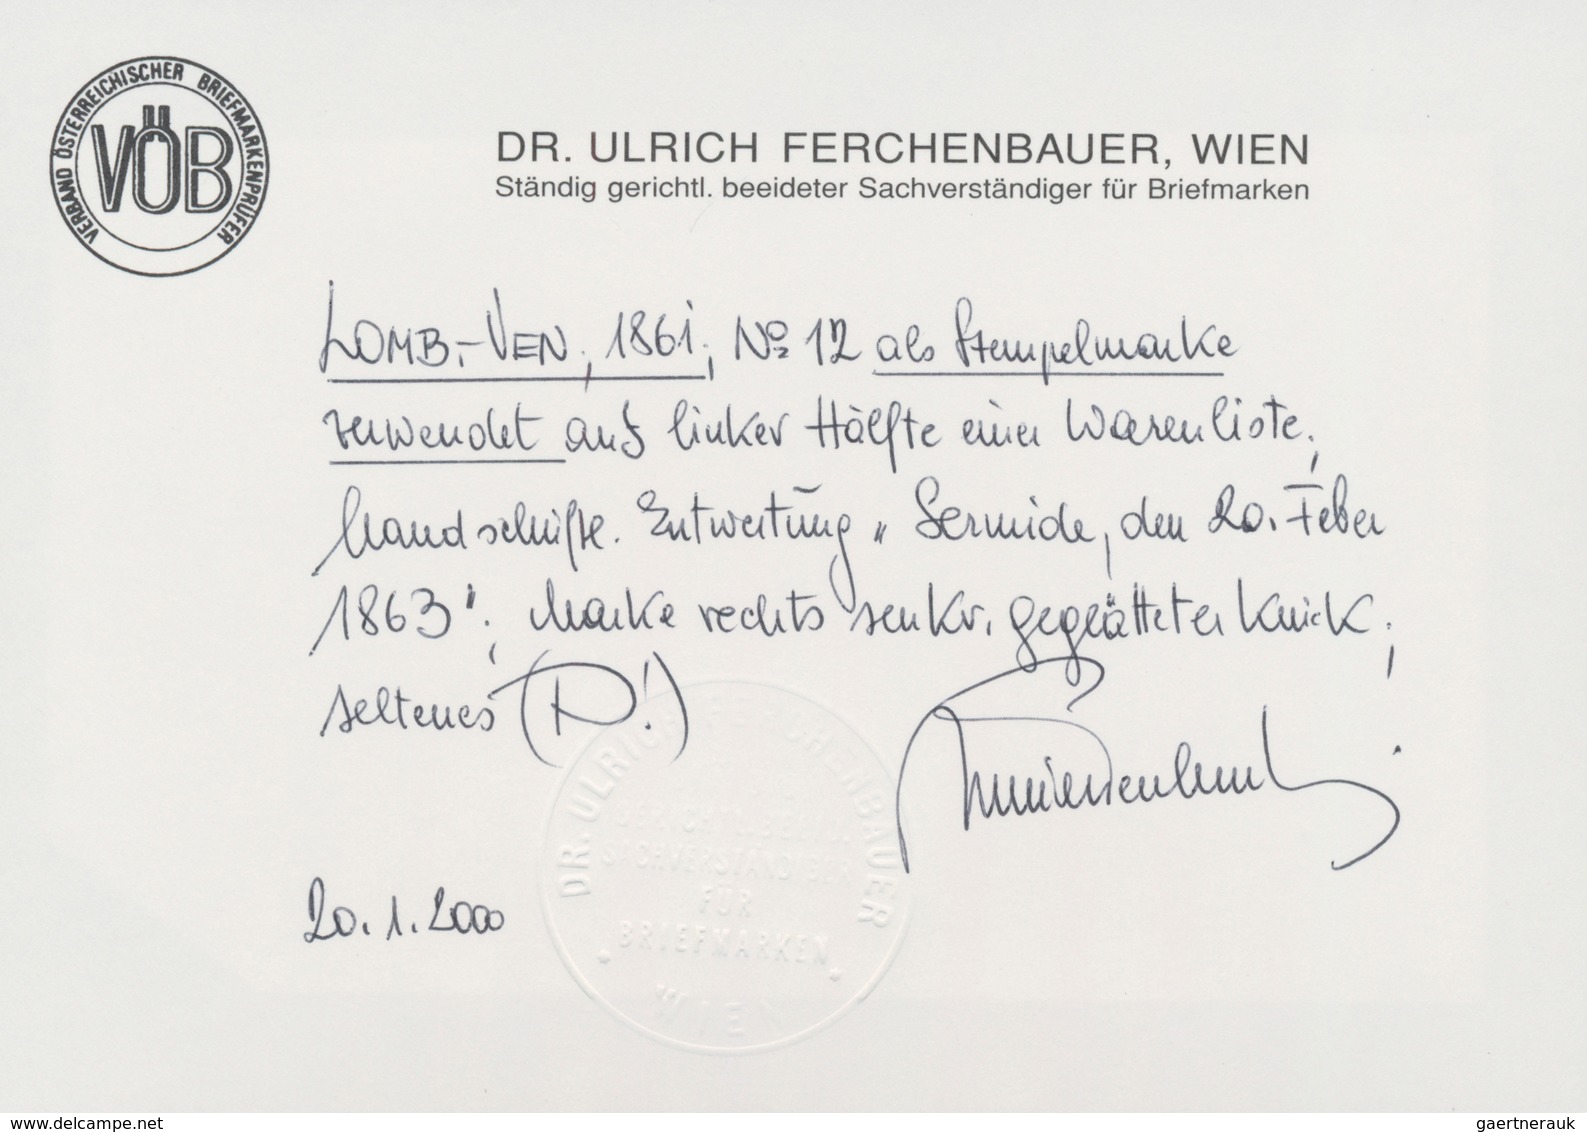 VERBAND ÖSTERREICHISCHER BRIEFMARKENPRÜFER
VÖB
DR. ULRICH FERCHENBAUER, WIEN
Ständig gerichtl. beeideter Sachverständiger für Briefmarken
LOMB.-VEN, 1861, No 12 als Stempelmarke
verwendet auf linker Hälfte einer Warenliste,
handschiftl. Entwertung „Sermide, den 20. Feber
1863", Marke rechts senkr. geglätteter Knick,
seltenes (R!)
DR. ULRICH FERCHENBAUER
SACHVERSTÄNDIGER
FÜR
BRIEFMARKEN
WIEN
20.1.2000
www.delcampe.net
gaertnerauk